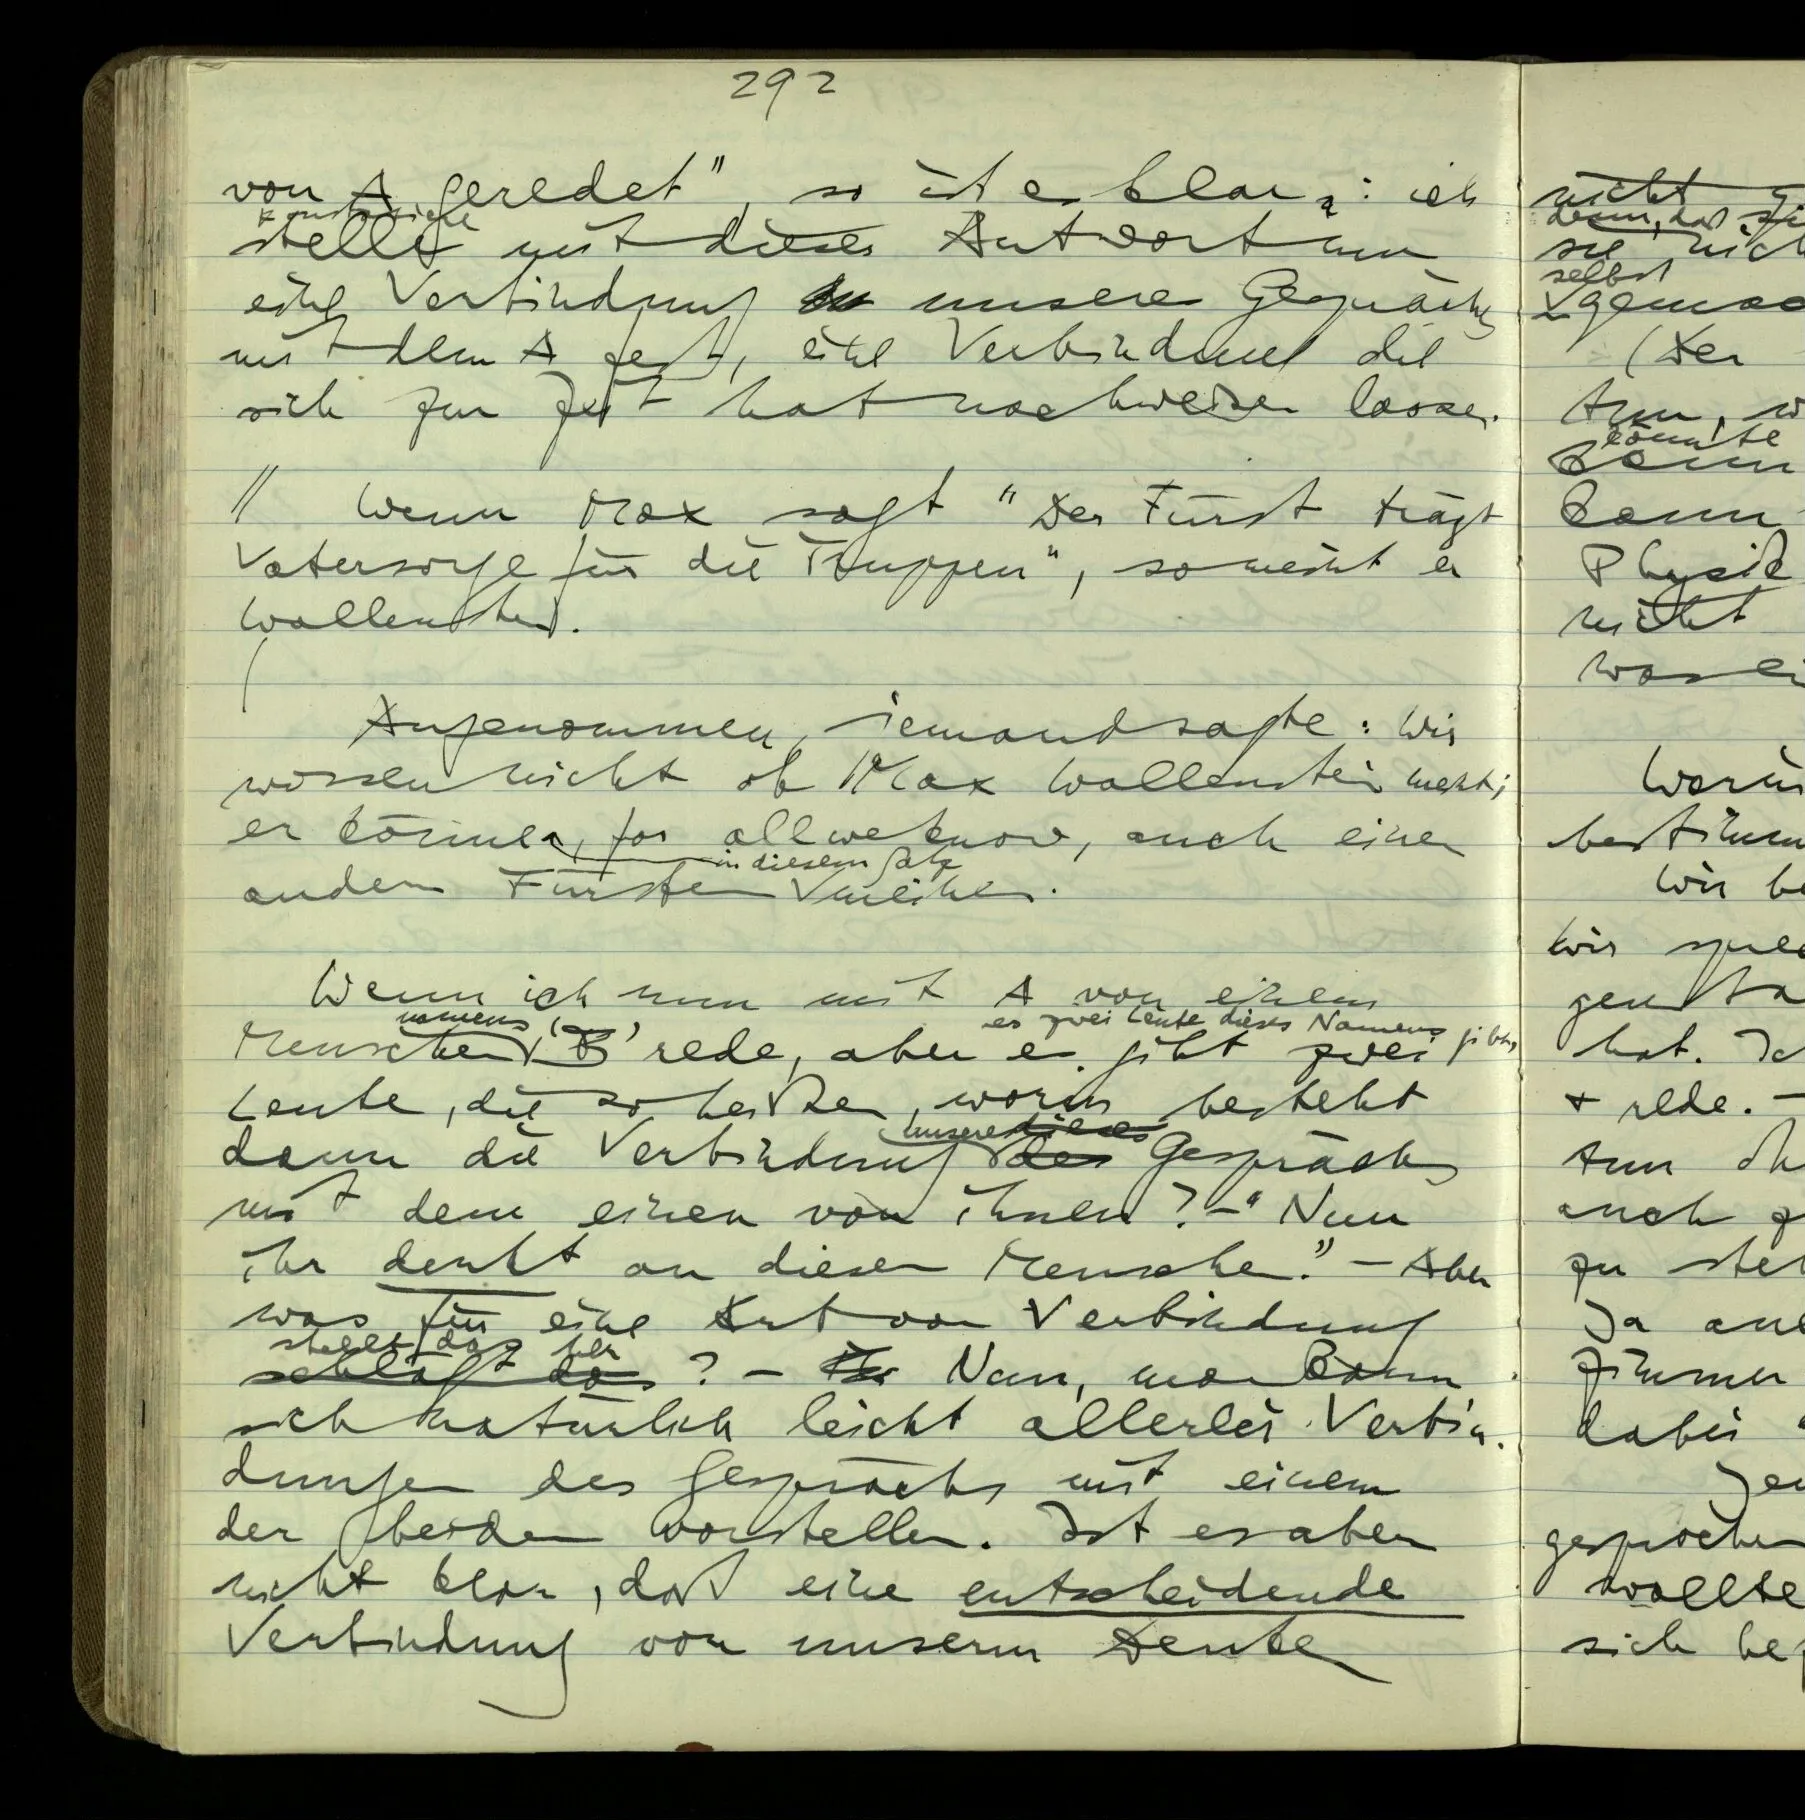 292
von A geredet", so ist es klar: ich
konstatiere
stelle mit dieser Antwort nun
eine Verbindung unseres Gesprächs
mit dem A fest, eine Verbindung die
sich zur Zeit hat nachweisen lassen.
// Wenn Max sagt "Der Fürst trägt
Vatersorge für die Truppen", so meint er
Wallenstein.
Angenommen, jemand sagte: Wir
wissen nicht ob Max Wallenstein meint;
er könne, for all we know, auch einen
in diesem Satz
andern Fürsten meinen.
Wenn ich nun mit A von einem
namens es zwei Leute dieses Namens gibt,
Menschen 'B' rede, aber es gibt zwei
Leute, die so heißen, worin besteht
unseres dieses
dann die Verbindung des Gesprächs
mit dem einen von ihnen? – "Nun
ihr denkt an diesen Menschen." – Aber
was für eine Art von Verbindung
stellt das her
schlägt das ? – Nun, man kann
sich natürlich leicht allerlei Verbin-
dungen des Gesprächs mit einem
der beiden vorstellen. Ist es aber
nicht klar, daß eine entscheidende
Verbindung von unserm Denken
nicht
denn, daß
sie
selbst
(Der
könnte
kann
Physik
nicht
wir
hat.
+ rede. –
auch
zu
Ja
Zimmer
dabei
wollte
sich